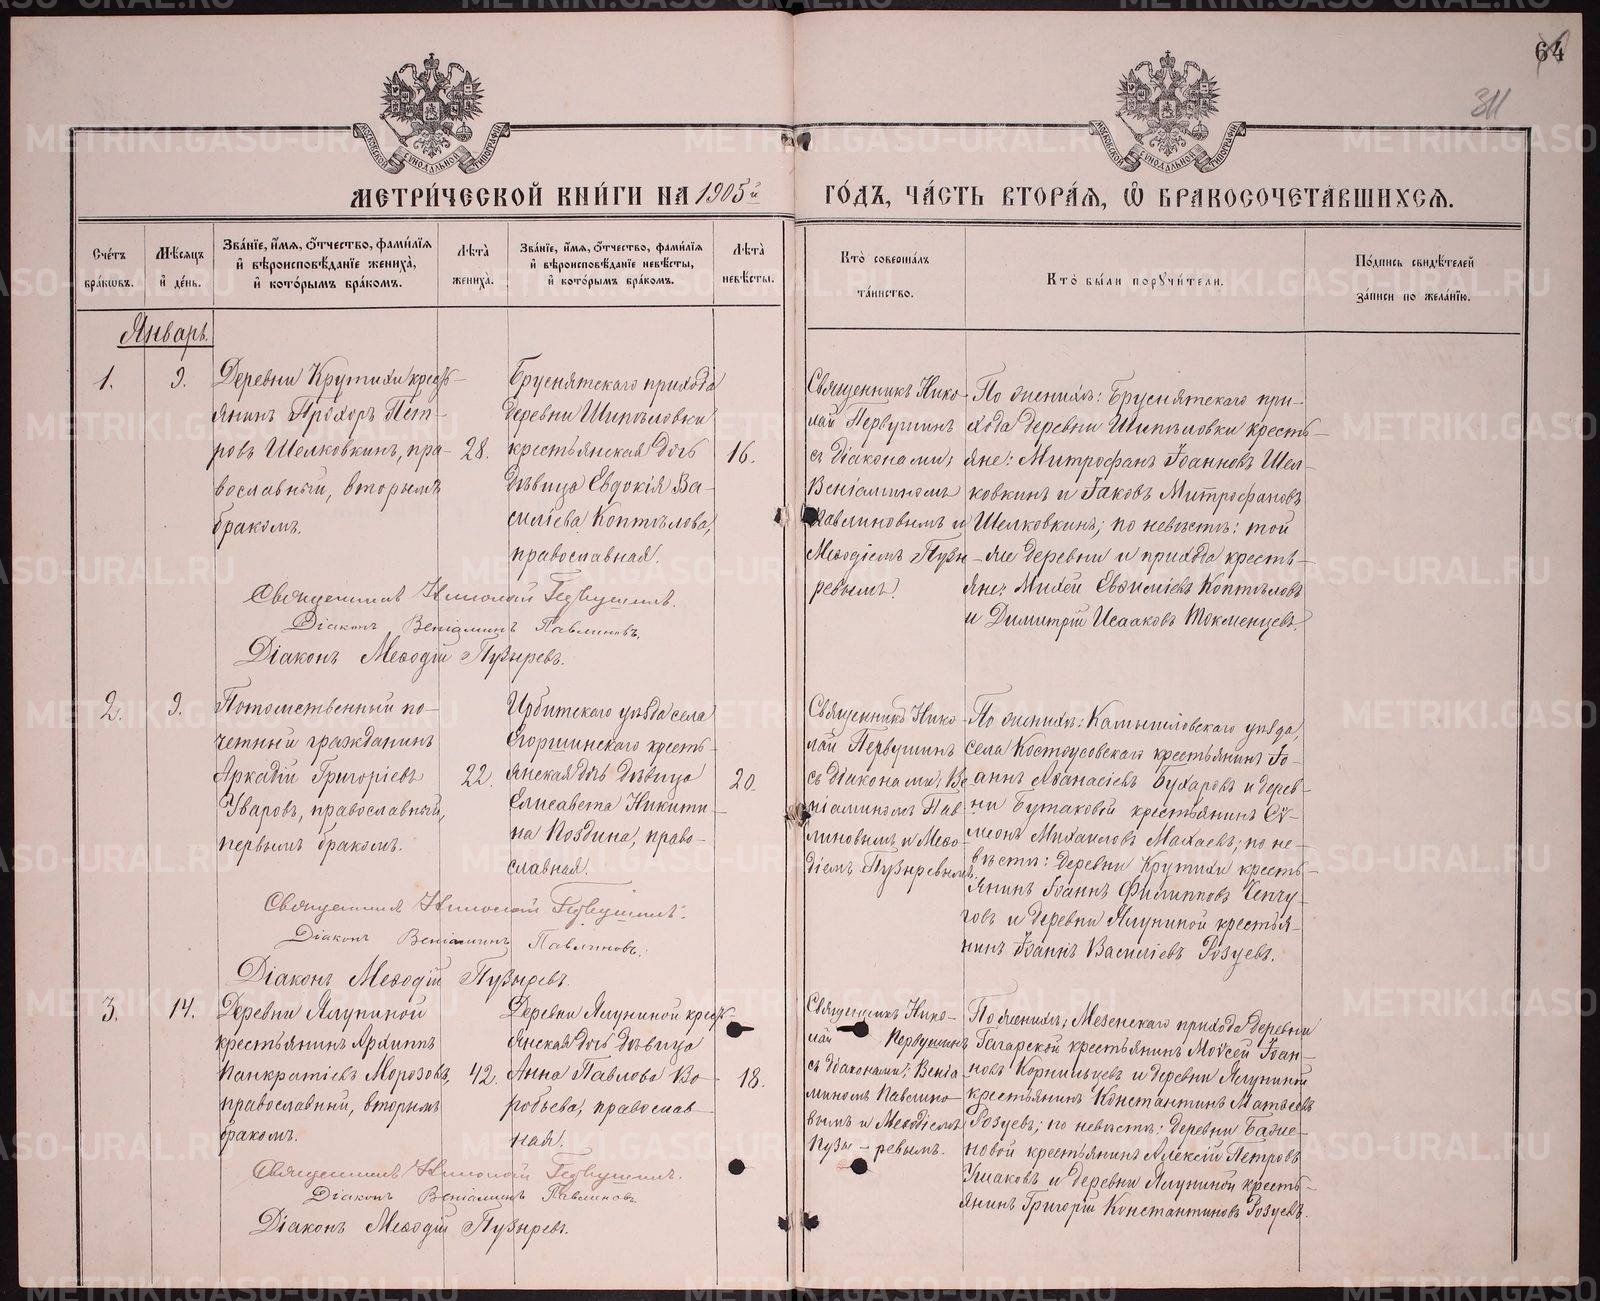 64
311
МЕТРИ́ЧЕСКОЙ КНИ́ГИ НА 1905й ГО́ДЪ, ЧА́СТЬ ВТОРА́Ѧ, Ѽ БРАКОСОЧЕТА́ВШИХСѦ.
Сче́тъ бра́кѡвъ.
Мѣ́сѧцъ и҆ де́нь.
Зва́нїе, и҆́мѧ, ѻ҆́тчество, фами́лїѧ и҆ вѣроисповѣ́данїе жениха̀, и҆ кото́рымъ бра́комъ.
Лѣ́та жениха̀.
Зва́нїе, и҆́мѧ, ѻ҆́тчество, фами́лїѧ и҆ вѣроисповѣ́данїе невѣ́сты, и҆ кото́рымъ бра́комъ.
Лѣ́та невѣ́сты.
Кто̀ соверша́лъ та́инство.
Кто̀ бы́ли порꙋчи́тели.
По́дпись свидѣ́телей за́писи по жела́нїю.
Январь.
1.
9.
Деревни Крутихи кресть-
янинъ Прохоръ Пет-
ровъ Шелковкинъ, пра-
вославный, вторымъ
бракомъ.
28.
Бруснятскаго прихода
деревни Шипѣловки
крестьянская дочь
дѣвица Евдокія Ва-
сильева Коптѣлова,
православная.
16.
Священникъ Нико-
лай Первушинъ
съ діаконами:
Веніаминомъ
Павлиновымъ и
Меѳодіемъ Пузы-
ревымъ.
По женихѣ: Бруснятскаго при-
хода деревни Шипѣловки кресть-
яне: Митрофанъ Іоанновъ Шел-
ковкинъ и Іаковъ Митрофановъ
Шелковкинъ; по невѣстѣ: той
же деревни и прихода кресть-
яне: Михей Евѳиміевъ Коптѣловъ
и Димитрій Исааковъ Токменцевъ.
Священникъ Николай Первушинъ.
Діаконъ Веніаминъ Павлиновъ.
Діаконъ Меѳодій Пузыревъ.
2.
9.
Потомственный по-
четный гражданинъ
Аркадій Григоріевъ
Уваровъ, православный,
первымъ бракомъ.
22.
Ирбитскаго уѣзда села
Егоршинскаго кресть-
янская дочь дѣвица
Елисавета Никити-
на Поздина, право-
славная.
20.
Священникъ Нико-
лай Первушинъ
съ діаконами: Ве-
ніаминомъ Пав-
линовымъ и Меѳо-
діемъ Пузыревымъ.
По женихѣ: Камышловскаго уѣзда
села Костоусовскаго крестьянинъ Іо-
аннъ Аѳанасіевъ Бухаровъ и дерев-
ни Бутаковой крестьянинъ Сѵ-
меонъ Михаиловъ Махаевъ; по не-
вѣстѣ: деревни Крутихи кресть-
янинъ Іоаннъ Филипповъ Чепчу-
говъ и деревни Ялуниной крестья-
нинъ Іоаннъ Василіевъ Розуевъ.
Священникъ Николай Первушинъ.
Діаконъ Веніаминъ Павлиновъ.
Діаконъ Меѳодій Пузыревъ.
3.
14.
Деревни Ялуниной
крестьянинъ Архиппъ
Панкратіевъ Морозовъ,
православный, вторымъ
бракомъ.
42.
Деревни Ялуниной кресть-
янская дочь дѣвица
Анна Павлова Во-
робьева, православ-
ная.
18.
Священникъ Нико-
лай Первушинъ
съ діаконами: Веніа-
миномъ Павлино-
вымъ и Меѳодіемъ
Пузы-ревымъ.
По женихѣ: Мезенскаго прихода деревни
Гагарской крестьянинъ Моѵсей Іоан-
новъ Корнильцевъ и деревни Ялуниной
крестьянинъ Константинъ Матѳеевъ
Розуевъ; по невѣстѣ: деревни Баже-
новой крестьянинъ Алексій Петровъ
Ушаковъ и деревни Ялуниной кресть-
янинъ Григорій Константиновъ Розуевъ.
Священникъ Николай Первушинъ.
Діаконъ Веніаминъ Павлиновъ.
Діаконъ Меѳодій Пузыревъ.
METRIKI.GASO-URAL.RU